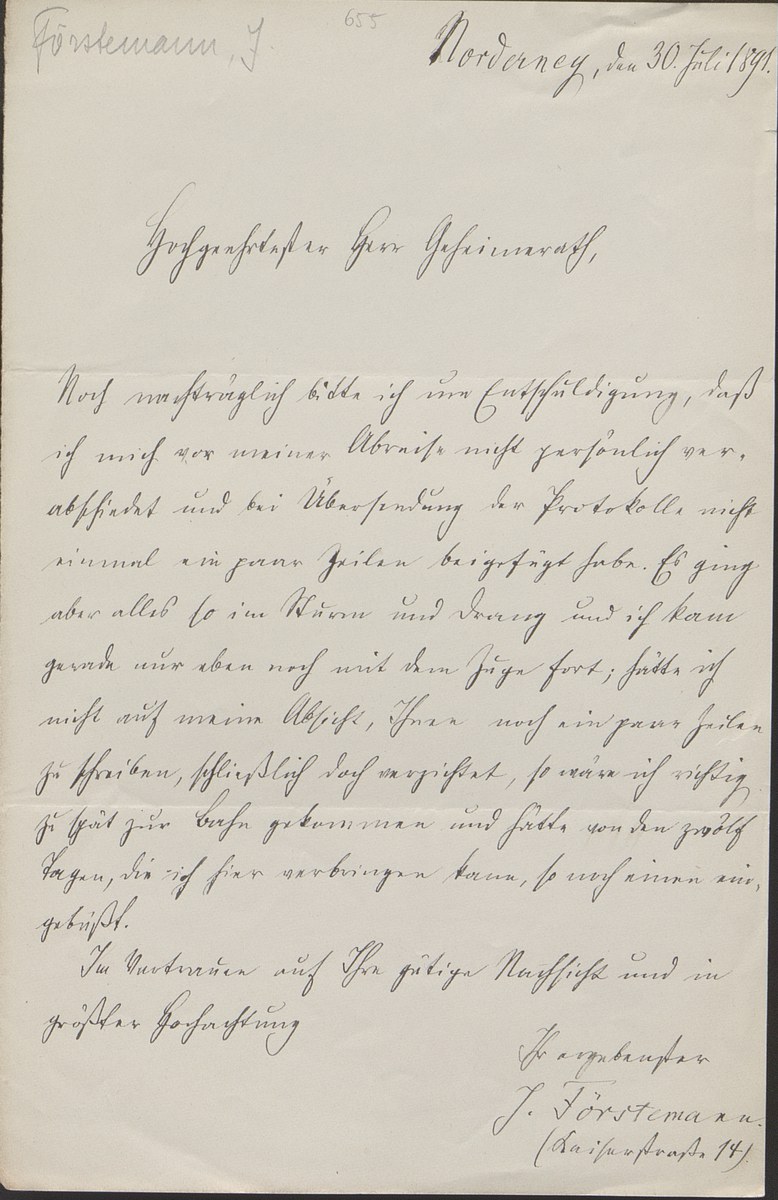 Förstemann, J.
655
Norderney, den 30. Juli 1891.
Hochgeehrtester Herr Geheimerath,
Noch nachträglich bitte ich um Entschuldigung, daß
ich mich vor meiner Abreise nicht persönlich ver-
abschiedet und bei Übersendung der Protokolle nicht
einmal ein paar Zeilen beigefügt habe. Es ging
aber alles so im Sturm und Drang und ich kam
gerade nur eben noch mit dem Zuge fort; hätte ich
nicht auf meine Absicht, Ihnen noch ein paar Zeilen
zu schreiben, schließlich doch verzichtet, so wäre ich richtig
zu spät zur Bahn gekommen und hätte von den zwölf
Tagen, die ich hier verbringen kann, so noch einen ein-
gebüßt.
Im Vertrauen auf Ihre gütige Nachsicht und in
größter Hochachtung
Ihr ergebenster
J. Förstemann.
(Kaiserstraße 14)